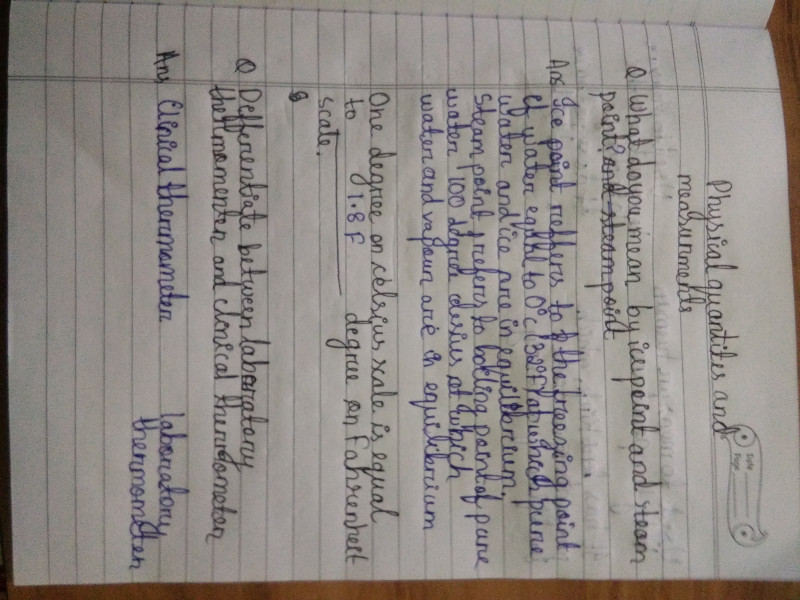 Date
Page
Physical quantites and
measurments
Q What do you mean by ice point and steam
point? and steam point
Ans Ice point reffers to the freezing point
of water equal to 0°C (32°F) at which pure
water and ice are in equilibrium.
Steam point refers to boiling point of pure
water 100 degree clesius at which
water and vapour are in equilibrium
One degree on celsius scale is equal
to 1.8 F degree on Fahrenheit
scale.
Q Defferentiate between laboratory
thermomenter and clinical thermometer
Ans Clinical thermometer laboratory
thermometer